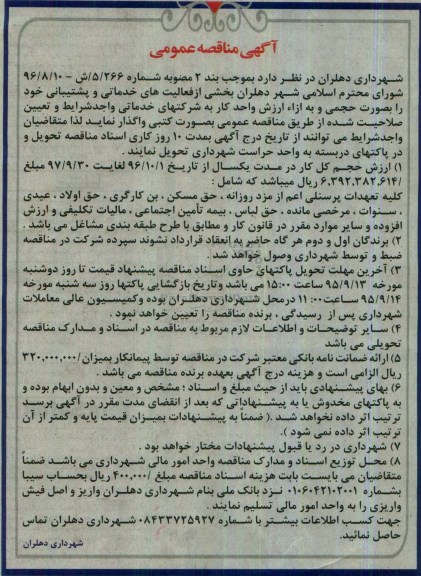 آگهی مناقصه عمومی
شهرداری دهلران در نظر دارد بموجب بند ۲ مصوبه شماره ۵/۲۶۶/ش - ۹۶/۸/۱۰
شورای محترم اسلامی شهر دهلران بخشی ازفعالیت های خدماتی و پشتیبانی خود
را بصورت حجمی و به ازاء ارزش واحد کار به شرکتهای خدماتی واجدشرایط و تعیین
صلاحیت شده از طریق مناقصه عمومی بصورت کتبی واگذار نماید لذا متقاضیان
واجدشرایط می توانند از تاریخ درج آگهی بمدت ۱۰ روز کاری اسناد مناقصه تحویل و
در پاکتهای دربسته به واحد حراست شهرداری تحویل نمایند .
۱) ارزش حجم کل کار در مدت یکسال از تاریخ ۹۶/۱۰/۱ لغایت ۹۷/۹/۳۰ مبلغ
۶,۳۹۲,۳۸۲,۶۱۴/ ریال میباشد که شامل :
کلیه تعهدات پرسنلی اعم از مزد روزانه ، حق مسکن ، بن کارگری ، حق اولاد ، عیدی
، سنوات ، مرخصی مانده ، حق لباس ، بیمه تأمین اجتماعی ، مالیات تکلیفی و ارزش
افزوده و سایر موارد مقرر در قانون کار و مطابق با طرح طبقه بندی مشاغل می باشد .
۲) برندگان اول و دوم هر گاه حاضر به انعقاد قرارداد نشوند سپرده شرکت در مناقصه
ضبط و توسط شهرداری وصول خواهد شد .
۳) آخرین مهلت تحویل پاکتهای حاوی اسناد مناقصه پیشنهاد قیمت تا روز دوشنبه
مورخه ۹۵/۹/۱۳ ساعت ۱۵:۰۰ می باشد وتاریخ بازگشایی پاکتها روز سه شنبه مورخه
۹۵/۹/۱۴ ساعت ۱۱:۰۰ درمحل شهرداری دهلران بوده وکمیسیون عالی معاملات
شهرداری پس از رسیدگی ، برنده مناقصه را تعیین خواهد نمود .
۴) سایر توضیحات و اطلاعات لازم مربوط به مناقصه در اسناد و مدارک مناقصه
تحویلی می باشد
۵) ارائه ضمانت نامه بانکی معتبر شرکت در مناقصه توسط پیمانکار بمیزان/۳۲۰,۰۰۰,۰۰۰
ریال الزامی است و هزینه درج آگهی بعهده برنده مناقصه می باشد .
۶) بهای پیشنهادی باید از حیث مبلغ و اسناد ؛ مشخص و معین و بدون ابهام بوده و
به پاکتهای مخدوش یا به پیشنهاداتی که بعد از انقضای مدت مقرر در آگهی برسد
ترتیب اثر داده نخواهد شد .( ضمناً به پیشنهادات بمیزان قیمت پایه و کمتر از آن
ترتیب اثر داده نمی شود ).
۷) شهرداری در رد یا قبول پیشنهادات مختار خواهد بود .
۸) محل توزیع اسناد و مدارک مناقصه واحد امور مالی شهرداری می باشد ضمناً
متقاضیان می بایست بابت هزینه اسناد مناقصه مبلغ /۴۰۰,۰۰۰ ریال بحساب سیبا
بشماره ۰۱۰۶۰۴۲۱۰۲۰۰۱ نزد بانک ملی بنام شهرداری دهلران واریز و اصل فیش
واریزی را به واحد امور مالی تسلیم نمایند .
جهت کسب اطلاعات بیشتر با شماره ۰۸۴۳۳۷۲۵۹۲۷ شهرداری دهلران تماس
حاصل نمائید.
شهرداری دهلران